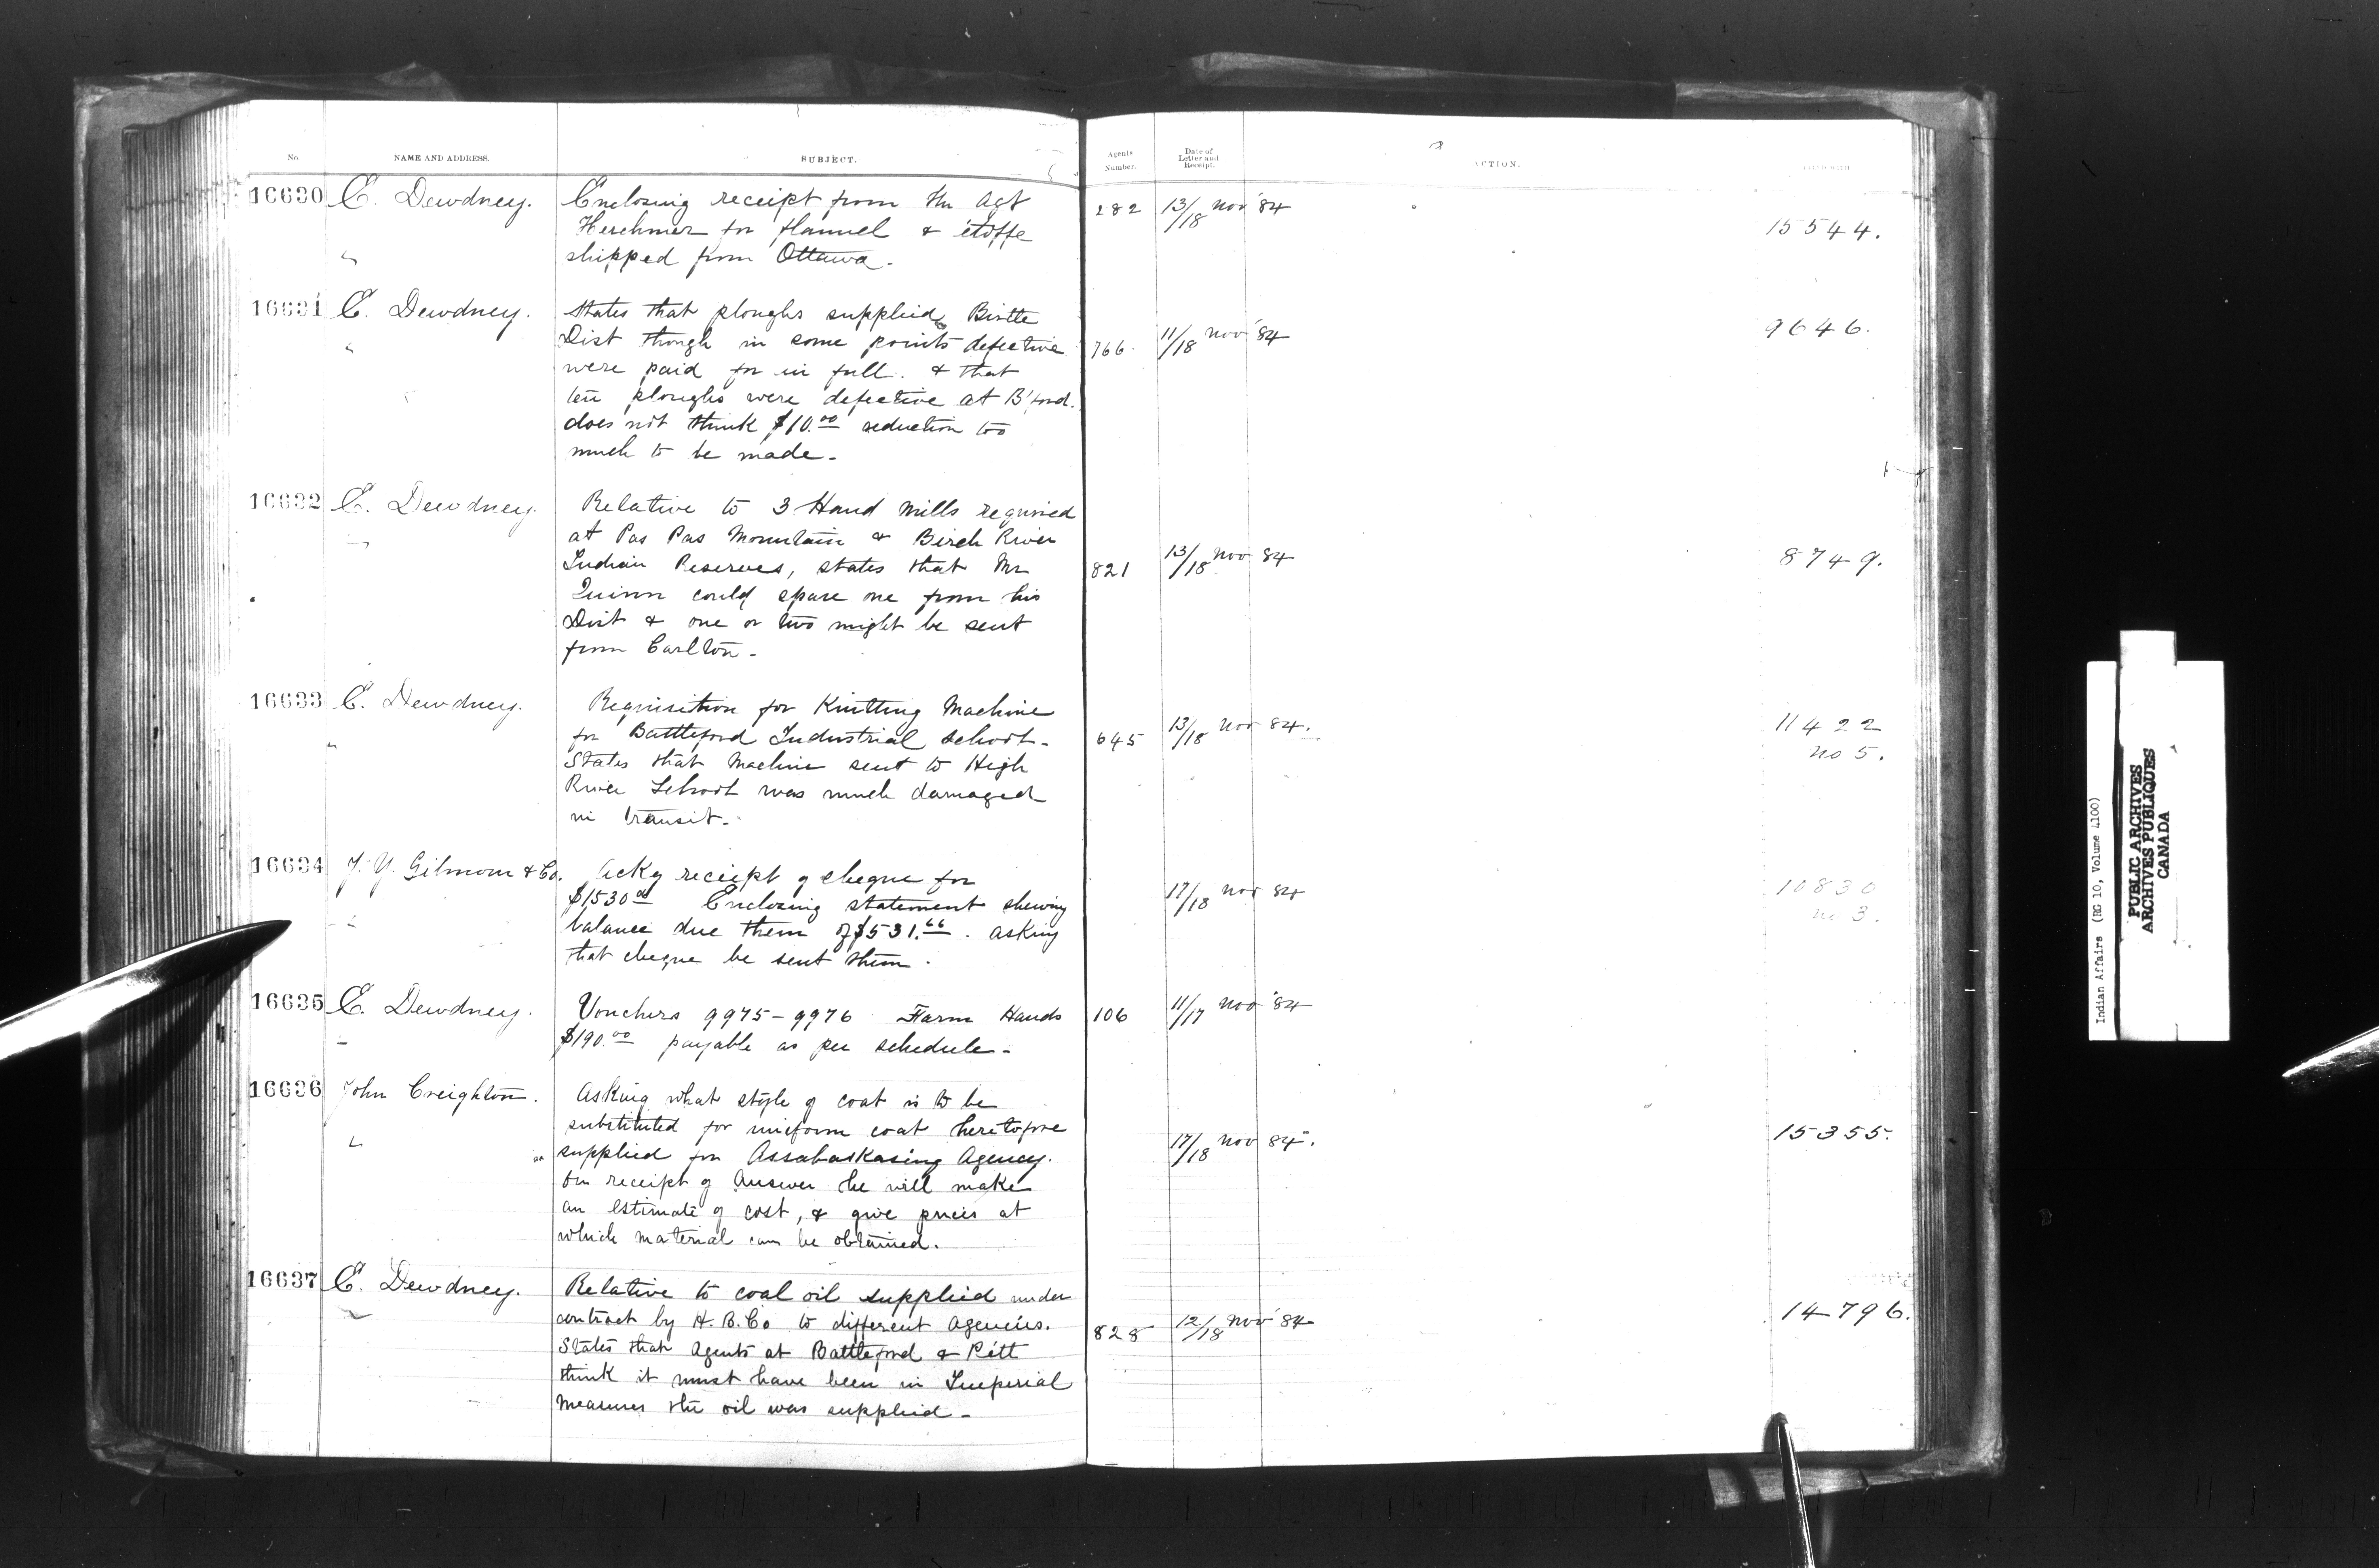 No.
NAME AND ADDRESS.
SUBJECT.
Agents Number.
Date of Letter and Receipt.
ACTION.
16630 E. Dewdney. Enclosing receipt from Ind Agt 282 13/18 Nov '84 15544.
Herchmer for flannel & étoffe
" shipped from Ottawa -
16631 E. Dewdney. States that ploughs supplied Birtle 9646.
" Dist though in some points defective 766 11/18 Nov '84
were paid for in full. & that
ten ploughs were defective at B'ford.
does not think $10.00 reduction too
much to be made -
16632 E. Dewdney. Relative to 3 Hand Mills required
" at Pas Pas Mountain & Birch River
Indian Reserves, states that Mr 821 13/18 Nov 84 8749.
Quinn could spare one from his
Dist & one or two might be sent
from Carlton -
16633 E. Dewdney. Requisition for Knitting Machine
" for Battleford Industrial School - 645 13/18 Nov 84. 11422
States that Machine sent to High no 5.
River School was much damaged
in transit -
16634 J. Y. Gilmour & Co. Ackg receipt of cheque for
$1530.00 Enclosing statement shewing 17/18 Nov 84 10830
" balance due them of $531.66. asking no 3.
that cheque be sent them.
16635 E. Dewdney. Vouchers 9975 - 9976 Farm Hands 106 11/17 Nov '84
" $190.00 payable as per schedule -
16636 John Creighton. Asking what style of coat is to be
substituted for uniform coat heretofore
" supplied for Assabaskasing Agency. 17/18 Nov 84. 15355.
On receipt of Answer he will make
an estimate of cost, & give prices at
which material can be obtained.
16637 E. Dewdney. Relative to coal oil supplied under
" contract by H. B. Co to different Agencies. 828 12/18 Nov '84 14796.
States that Agents at Battleford & Pitt
think it must have been in Imperial
Measures the oil was supplied -
Indian Affairs (RG 10, Volume 4100)
PUBLIC ARCHIVES
ARCHIVES PUBLIQUES
CANADA